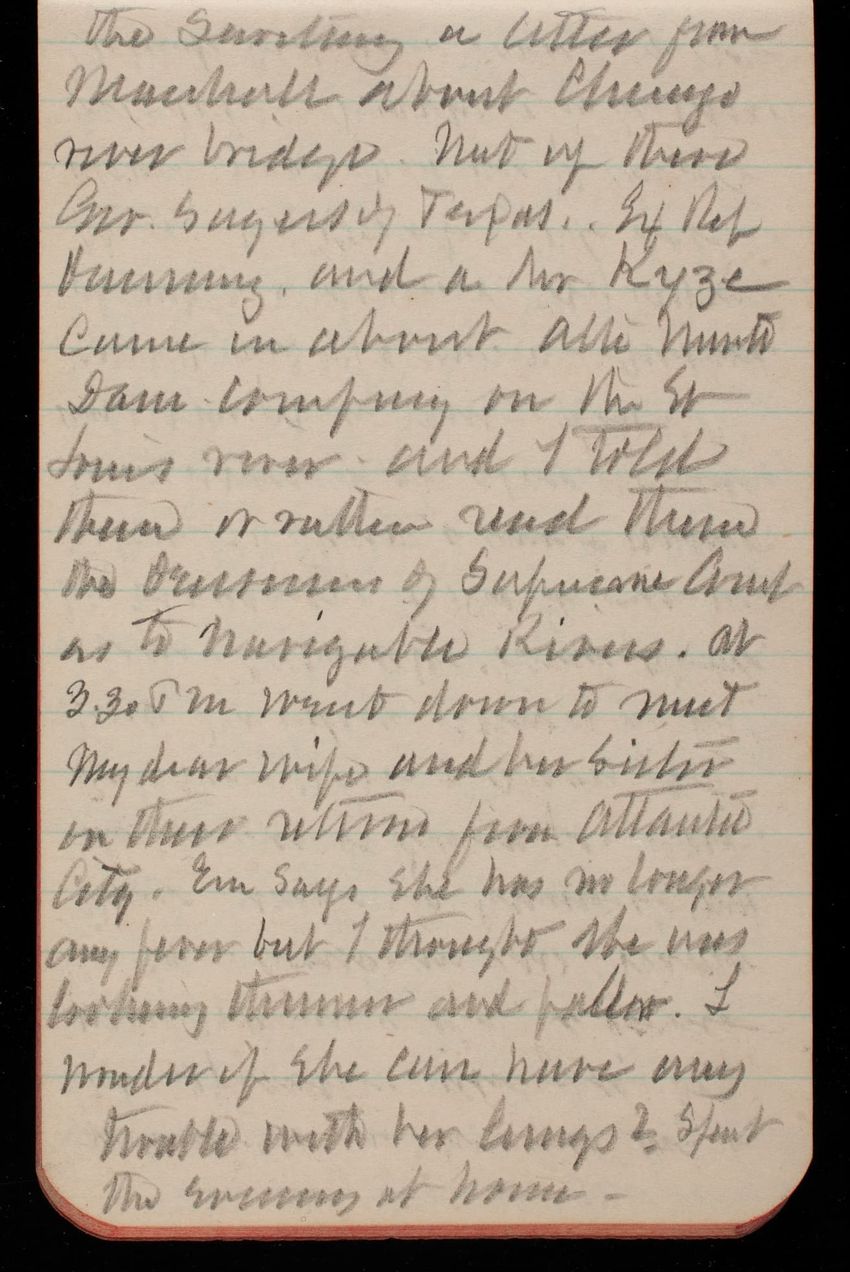 the Secretary a letter from
Marshall about Chicago
river bridge. Met up there
Gov. Sayers of Texas. Ex Rep
and a Mr Kyze
came in about
Dam company on the St
Louis river and I told
them or rather read them
the decisions of Supreme Court
as to Navigable Rivers. At
3.30 P M went down to meet
My dear wife and her Sister
on their return from Atlantic
City. Em says she has no longer
any fever but I thought she was
looking thinner and paller. I
wonder if she can have any
trouble with her lungs? Spent
the evening at home -